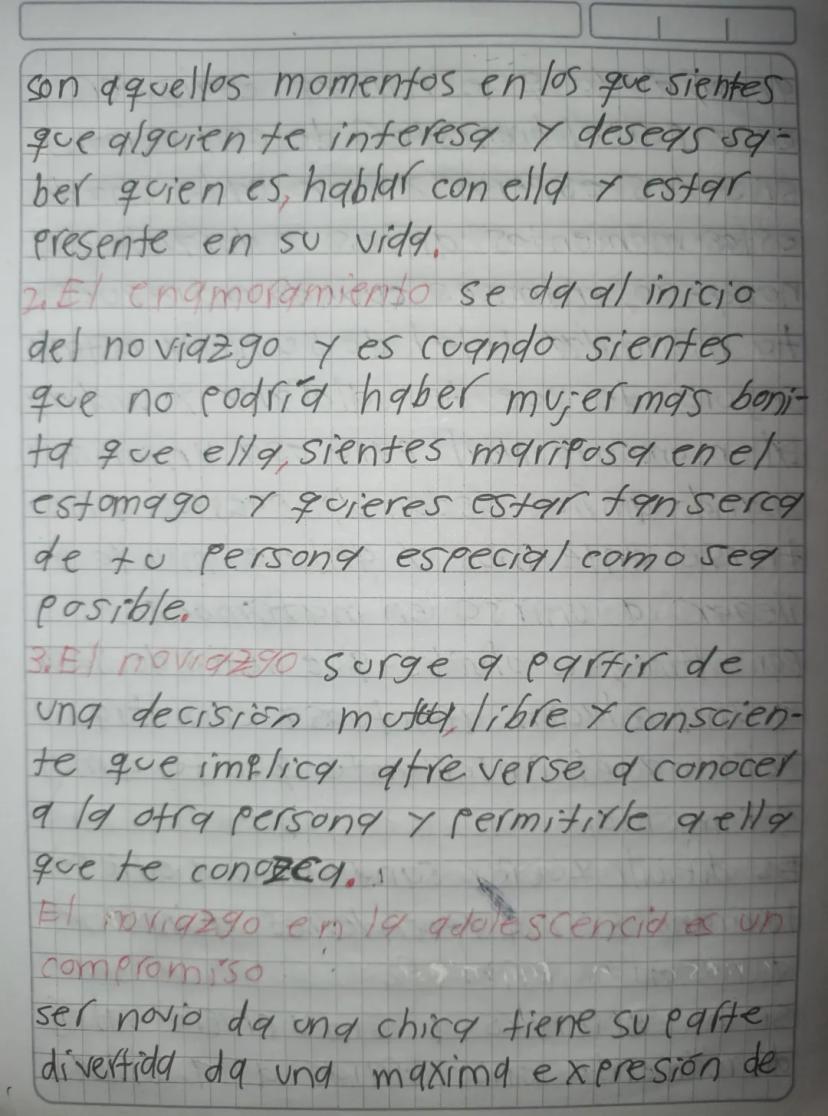 son aquellos momentos en los que sientes
que alguien te interesa y deseas sa-
ber quien es, hablar con ella y estar
presente en su vida.
2. El enamoramiento se da al inicio
del noviazgo y es cuando sientes
que no podría haber mujer más boni-
ta que ella, sientes mariposa en el
estomago y quieres estar tan serca
de tu persona especial como sea
posible.
3. El noviazgo surge a partir de
una decisión libre y conscien-
te que implica atreverse a conocer
a la otra persona y permitirle a ella
que te conozca.
El noviazgo en la adolescencia es un
compromiso
ser novio da una chica tiene su parte
divertida da una maxima expresión de